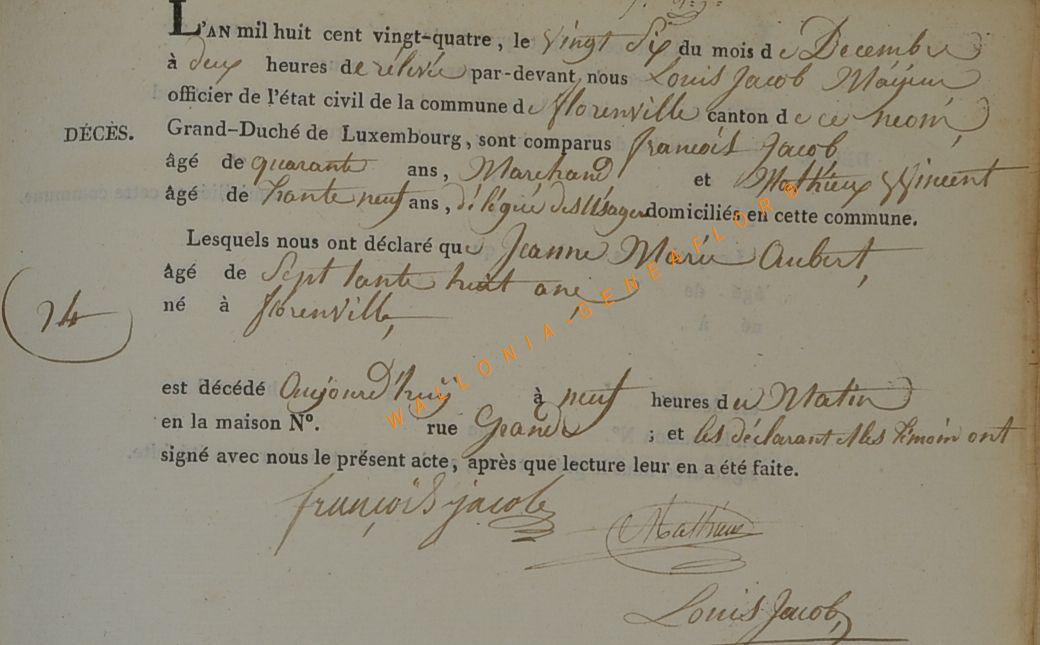 L'AN mil huit cent vingt-quatre, le Vingt Six du mois de Decembre
à deux heures de relevée par-devant nous Louis Jacob Maÿeur
officier de l'état civil de la commune de florenville canton de ce nom,
DÉCÈS.
Grand-Duché de Luxembourg, sont comparus françois Jacob
âgé de quarante ans, Marchand et Mathieux Vincent
âgé de trante neuf ans, délégué des Usages domiciliés en cette commune.
Lesquels nous ont déclaré que Jeanne Marie Aubert,
âgé de Sept tante huit ans,
né à florenville,
24
est décédé Aujourd'huÿ à neuf heures du Matin
en la maison N°. rue Grande ; et les déclarant et les témoin ont
signé avec nous le présent acte, après que lecture leur en a été faite.
françois jacob
Mathieux
Louis Jacob,
WALLONIA-GENEAFLORE